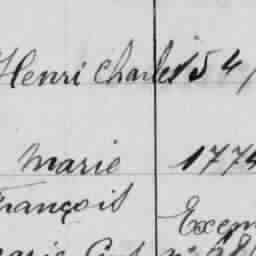 Henri Charles 154
Marie 1774
François
Exem
Marie